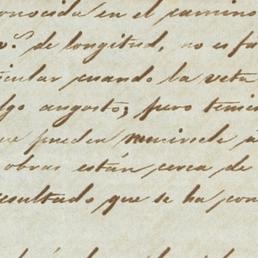 onocida en el camino
v.ª de longitud, no es fa
icular cuando la veta
lgo angosto; pero tenien
ue pueden reunirsele á
obras están cerca de
resultado que se ha con